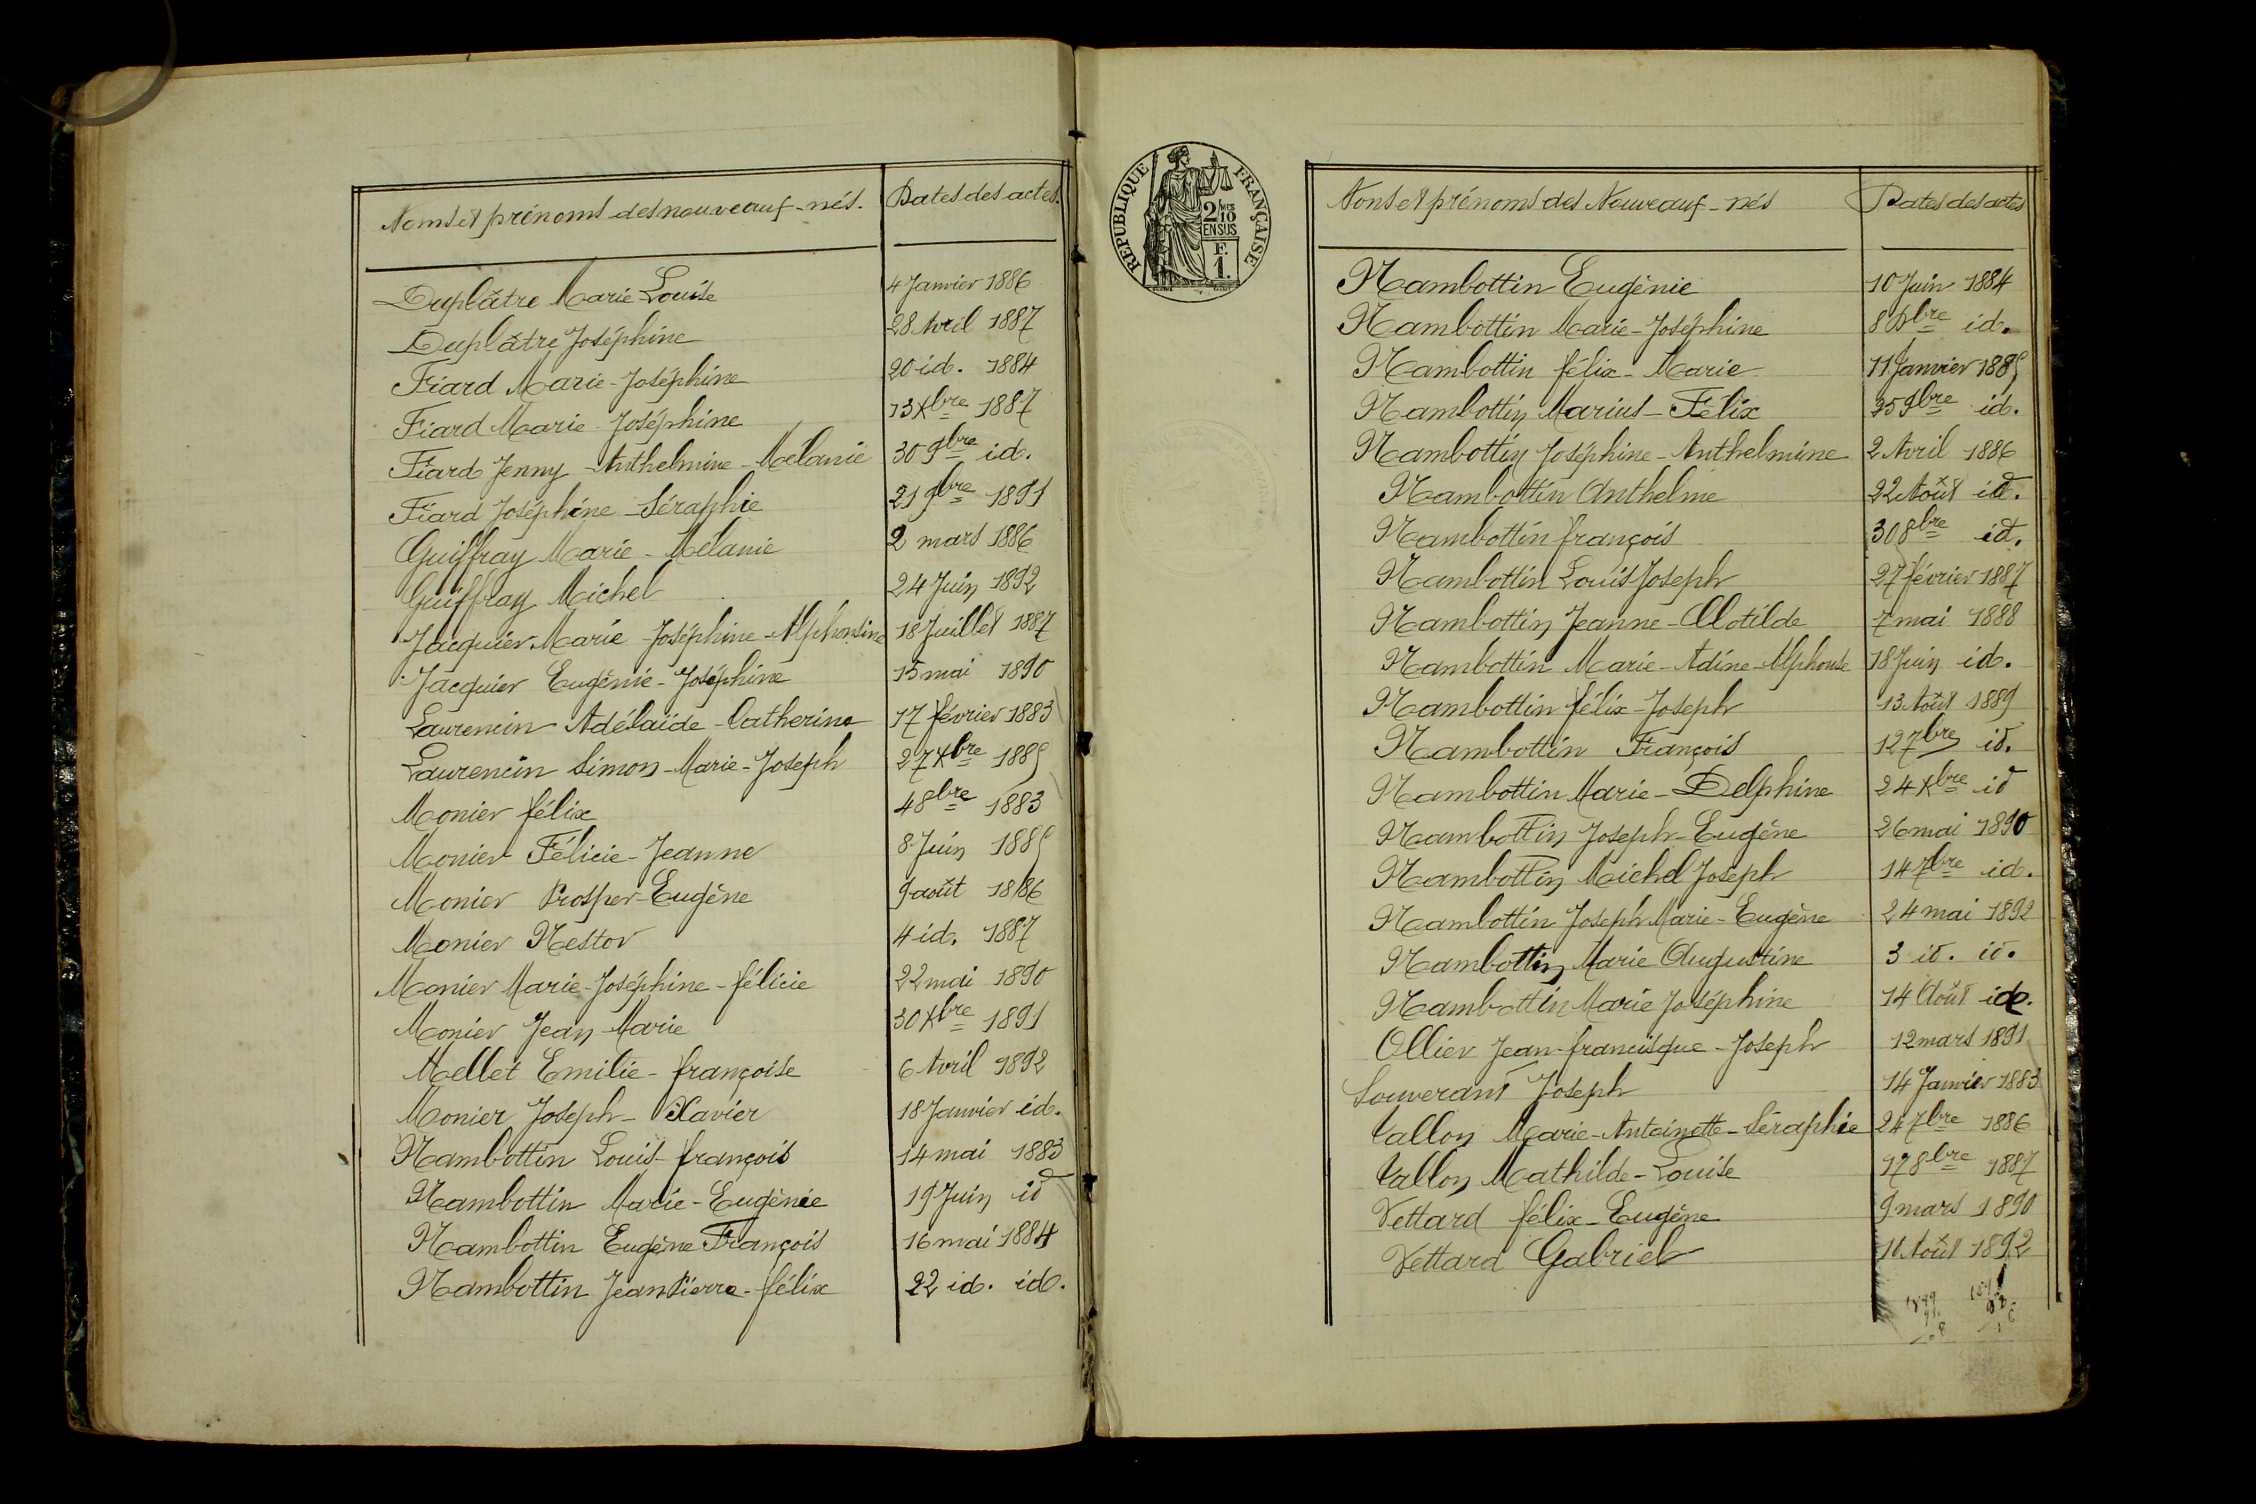 Noms et prénoms des nouveaux-nés. Dates des actes.
Duplâtre Marie Louise 4 Janvier 1886
Duplâtre Joséphine 28 Avril 1887
Fiard Marie-Joséphine 20 id. 1884
Fiard Marie Joséphine 13 Xbre 1887
Fiard Jenny-Anthelmine-Mélanie 30 9bre id.
Fiard Joséphine-Séraphie 21 9bre 1891
Guiffray Marie-Mélanie 2 mars 1886
Guiffray Michel 24 Juin 1892
Jacquier Marie-Joséphine-Alphonsine 18 Juillet 1887
Jacquier Eugénie-Joséphine 15 mai 1890
Laurencin Adélaïde-Catherine 17 février 1883
Laurencin Simon-Marie-Joseph 27 Xbre 1885
Monier félix 4 8bre 1883
Monier Félicie-Jeanne 8 Juin 1885
Monier Prosper-Eugène 9 août 1886
Monier Nestor 4 id. 1887
Monier Marie-Joséphine-félicie 22 mai 1890
Monier Jean-Marie 30 Xbre 1891
Mellet Emilie-françoise 6 Avril 1892
Monier Joseph-Xavier 18 Janvier id.
Nambottin Louis-françois 14 mai 1883
Nambottin Marie-Eugénie 19 Juin id
Nambottin Eugène François 16 mai 1884
Nambottin Jean Pierre-félix 22 id. id.
RÉPUBLIQUE FRANÇAISE
2/10
EN SUS
F.
1.
Noms et prénoms des Nouveaux-nés Dates des actes
Nambottin Eugénie 10 Juin 1884
Nambottin Marie-Joséphine 8 id.
Nambottin félix-Marie 11 Janvier 1885
Nambottin Marius-Félix 25 9bre id.
Nambottin Joséphine-Anthelmine 2 Avril 1886
Nambottin Anthelme 22 Août id.
Nambottin françois 30 8bre id.
Nambottin Louis Joseph 27 février 1887
Nambottin Jeanne-Clotilde 7 mai 1888
Nambottin Marie-Adine-Alphonse 18 Juin id.
Nambottin félix-Joseph 13 Août 1889
Nambottin François 12 7bre id.
Nambottin Marie-Delphine 24 Xbre id
Nambottin Joseph-Eugène 26 mai 1890
Nambottin Michel Joseph 14 7bre id.
Nambottin Joseph Marie-Eugène 24 mai 1892
Nambottin Marie Augustine 3 id. id.
Nambottin Marie Joséphine 14 Août id.
Ollier Jean-francisque-Joseph 12 mars 1891
Souverant Joseph 14 Janvier 1883
Vallon Marie-Antoinette-Séraphie 24 7bre 1886
Vallon Mathilde-Louise 17 8bre 1887
Vettard félix-Eugène 9 mars 1890
Vettard Gabriel 11 Août 1892